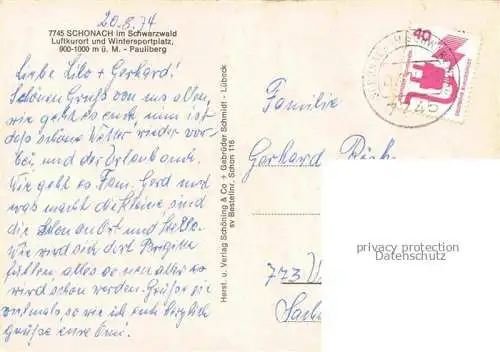 20.8.74
7745 SCHONACH im Schwarzwald
Luftkurort und Wintersportplatz,
900-1000 m ü. M. - Pauliberg
Liebe Lilo + Gerhard!
Schönen Gruß von uns allen,
wie geht es euch, nun ist
das schöne Wetter wieder vor-
bei, und der Urlaub auch.
Wie geht es Fam. Gerd und
was macht die kleine, sind
die schon an Ort und Stelle.
Wie wird sich dort Brigitte
fühlen, alles so neu, aber es
wird schon werden. Grüße sie
vielmals, so wie ich euch herzlich
Grüße eure Omi.
Herst. u. Verlag Schöning & Co + Gebrüder Schmidt - Lübeck
sv Bestellnr. Schon 116
40
7745
Familie
Gerhard
privacy protection
Datenschutz
773